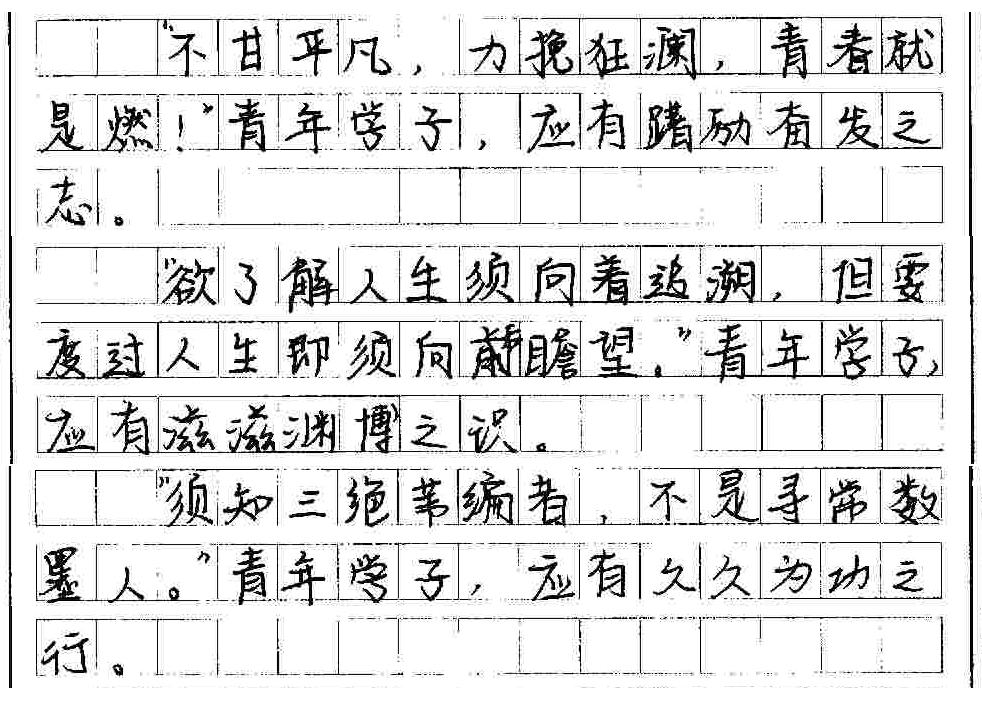 “不甘平凡，力挽狂澜，青春就
是燃！”青年学子，应有踔励奋发之
志。
“欲了解人生须向着追溯，但要
度过人生即须向前瞻望。”青年学子，
应有滋滋渊博之识。
“须知三绝苇编者，不是寻常数
墨人。”青年学子，应有久久为功之
行。